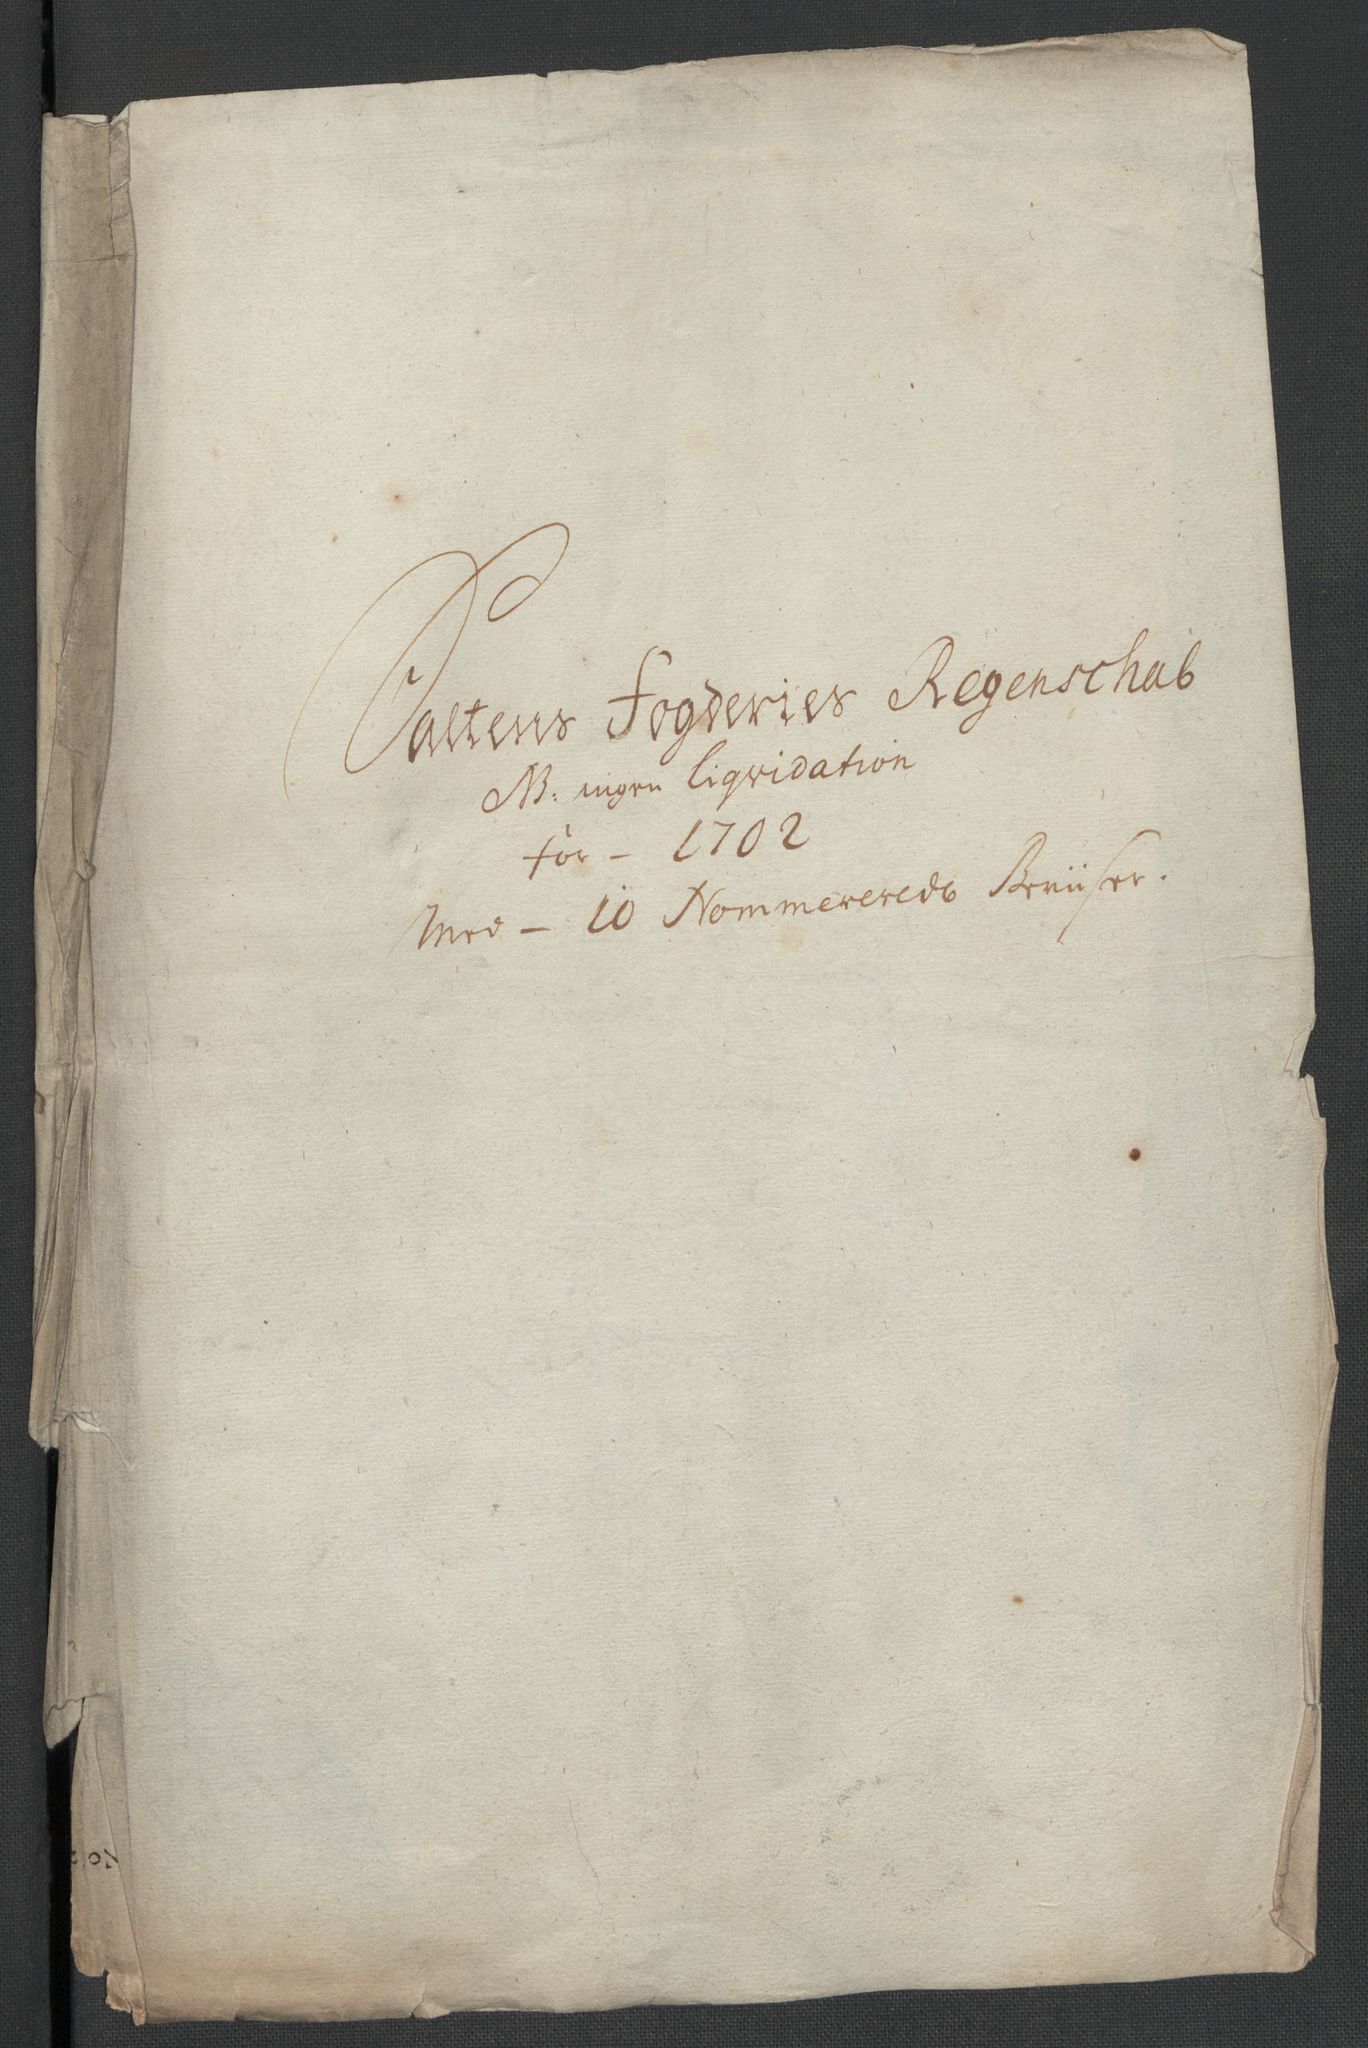 Saltens Fogderies Regenschab
NB: ingen liqvidation
for - 1702
Med - 10 Nommererede Beviiser.